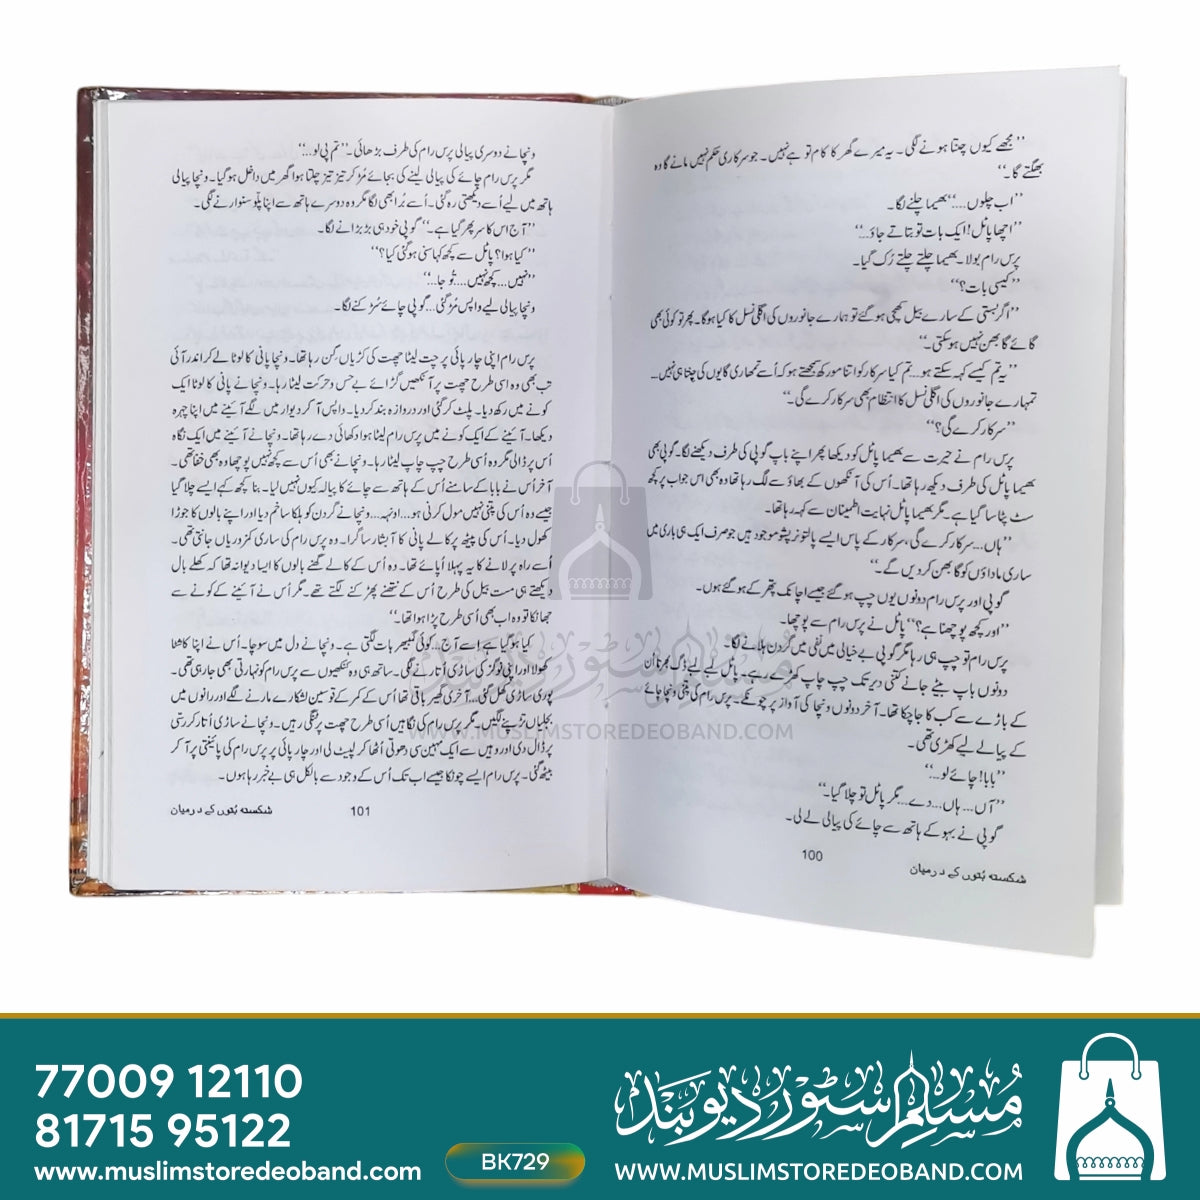 ’’مجھے کیوں چنتا ہونے لگی۔ یہ میرے گھر کا کام تو ہے نہیں۔ جو سرکاری حکم نہیں مانے گا وہ
بھگتے گا۔‘‘
’’اب چلوں....‘‘ بھیما چلنے لگا۔
’’اچھا پاٹل! ایک بات تو بتاتے جاؤ...‘‘
پرس رام بولا۔ بھیما چلتے چلتے رُک گیا۔
’’کیسی بات؟‘‘
’’اگر بستی کے سارے بیل کھچی ہو گئے تو ہمارے جانوروں کی اگلی نسل کا کیا ہوگا۔ پھر تو کوئی بھی
گائے گابھن نہیں ہو سکتی۔‘‘
’’یہ تم کیسے کہہ سکتے ہو... تم کیا سرکار کو اتنا مورکھ سمجھتے ہو کہ اُسے تمھاری گایوں کی چنتا ہی نہیں...
تمہارے جانوروں کی اگلی نسل کا انتظام بھی سرکار کرے گی۔‘‘
’’سرکار کرے گی؟‘‘
پرس رام نے حیرت سے بھیما پاٹل کو دیکھا پھر اپنے باپ گوپی کی طرف دیکھنے لگا۔ گوپی بھی
بھیما پاٹل کی طرف دیکھ رہا تھا۔ اُس کی آنکھوں کے بھاؤ سے لگ رہا تھا وہ بھی اس جواب پر کچھ
سٹ پٹا سا گیا ہے۔ مگر بھیما پاٹل نہایت اطمینان سے کہہ رہا تھا۔
’’ہاں... سرکار کرے گی، سرکار کے پاس ایسے پالتو نر پشو موجود ہیں جو صرف ایک ہی باری میں
ساری ماداؤں کو گابھن کر دیں گے۔‘‘
گوپی اور پرس رام دونوں یوں چپ ہو گئے جیسے اچانک پتھر کے ہو گئے ہوں۔
’’اور کچھ پوچھنا ہے؟‘‘ پاٹل نے پرس رام سے پوچھا۔
پرس رام تو چپ ہی رہا مگر گوپی بے خیالی میں نفی میں گردن ہلانے لگا۔
دونوں باپ بیٹے جانے کتنی دیر تک چپ چاپ کھڑے رہے۔ پاٹل لمبے لمبے ڈگ بھرتا اُن
کے باڑے سے کب کا جا چکا تھا۔ آخر دونوں ونچا کی آواز پر چونکے۔ پرس رام کی پتنی ونچا چائے
کے پیالے لیے کھڑی تھی۔
’’بابا! چائے لو...‘‘
’’آں... ہاں... دے... مگر پاٹل تو چلا گیا۔‘‘
گوپی نے بہو کے ہاتھ سے چائے کی پیالی لے لی۔
100
شکستہ بُتوں کے درمیان
ونچا نے دوسری پیالی پرس رام کی طرف بڑھائی۔ ’’تم پی لو...‘‘
مگر پرس رام چائے کی پیالی لینے کی بجائے مُڑ کر تیز تیز چلتا ہوا گھر میں داخل ہو گیا۔ ونچا پیالی
ہاتھ میں لیے اُسے دیکھتی رہ گئی۔ اُسے بُرا بھی لگا مگر وہ دوسرے ہاتھ سے اپنا پلّو سنوارنے لگی۔
’’آج اس کا سر پھر گیا ہے۔‘‘ گوپی خود ہی بڑبڑانے لگا۔
’’کیا ہوا؟ پاٹل سے کچھ کہا سنی ہو گئی کیا؟‘‘
’’نہیں... کچھ نہیں.... تُو جا...‘‘
ونچا پیالی لیے واپس مُڑ گئی... گوپی چائے سُڑکنے لگا۔
پرس رام اپنی چارپائی پر چت لیٹا چھت کی کڑیاں گِن رہا تھا۔ ونچا پانی کا لوٹا لے کر اندر آئی
تب بھی وہ اسی طرح چھت پر آنکھیں گڑائے بے حس و حرکت لیٹا رہا۔ ونچا نے پانی کا لوٹا ایک
کونے میں رکھ دیا۔ پلٹ کر گئی اور دروازہ بند کر دیا۔ واپس آ کر دیوار میں لگے آئینے میں اپنا چہرہ
دیکھا۔ آئینے کے ایک کونے میں پرس رام لیٹا ہوا دکھائی دے رہا تھا۔ ونچا نے آئینے میں ایک نگاہ
اُس پر ڈالی مگر وہ اسی طرح چپ چاپ لیٹا رہا۔ ونچا نے بھی اُس سے کچھ نہیں پوچھا وہ بھی خفا تھی۔
آخر اُس نے بابا کے سامنے اُس کے ہاتھ سے چائے کا پیالہ کیوں نہیں لیا۔ بنا کچھ کہے ایسے چلا گیا
جیسے وہ اُس کی پتنی نہیں مول کرنی ہو... اونہہ... ونچا نے گردن کو ہلکا سا خم دیا اور اپنے بالوں کا جوڑا
کھول دیا۔ اُس کی پیٹھ پر کالے پانی کا آبشار سا گرا۔ وہ پرس رام کی ساری کمزوریاں جانتی تھی۔
اُسے راہ پر لانے کا یہ پہلا اُپائے تھا۔ وہ اُس کے کالے گھنے بالوں کا ایسا دیوانہ تھا کہ کھلے بال
دیکھتے ہی مست بیل کی طرح اُس کے نتھنے پھڑکنے لگتے تھے۔ مگر اُس نے آئینے کے کونے سے
جھانکا تو وہ اب بھی اُسی طرح پڑا ہوا تھا۔‘‘
کیا ہو گیا ہے اِسے آج۔ کوئی گمبھیر بات لگتی ہے۔ ونچا نے دل میں سوچا۔ اُس نے اپنا کاشٹا
کھولا اور اپنی نو گز کی ساڑی اُتارنے لگی۔ ساتھ ہی وہ کنکھیوں سے پرس رام کو نہارتی بھی جا رہی تھی۔
پوری ساڑی کھل گئی... آخری گھیر باقی تھا اُس کے کمر کے قوسین لشکارے مارنے لگے اور رانوں میں
بجلیاں تڑپنے لگیں۔ مگر پرس رام کی نگاہیں اُسی طرح چھت پر ٹنگی رہیں۔ ونچا نے ساڑی اُتار کر رسّی
پر ڈال دی اور وہیں سے ایک مہین سی دھوتی اُٹھا کر لپیٹ لی اور چارپائی پر پرس رام کی پائنتی پر آ کر
بیٹھ گئی۔ پرس رام ایسے چونکا جیسے اب تک اُس کے وجود سے بالکل ہی بے خبر رہا ہوں۔
101
شکستہ بُتوں کے درمیان
مسلم سٹور دیوبند
WWW.MUSLIMSTOREDEOBAND.COM
77009 12110
81715 95122
www.muslimstoredeoband.com
BK729
مسلم سٹور دیوبند
WWW.MUSLIMSTOREDEOBAND.COM